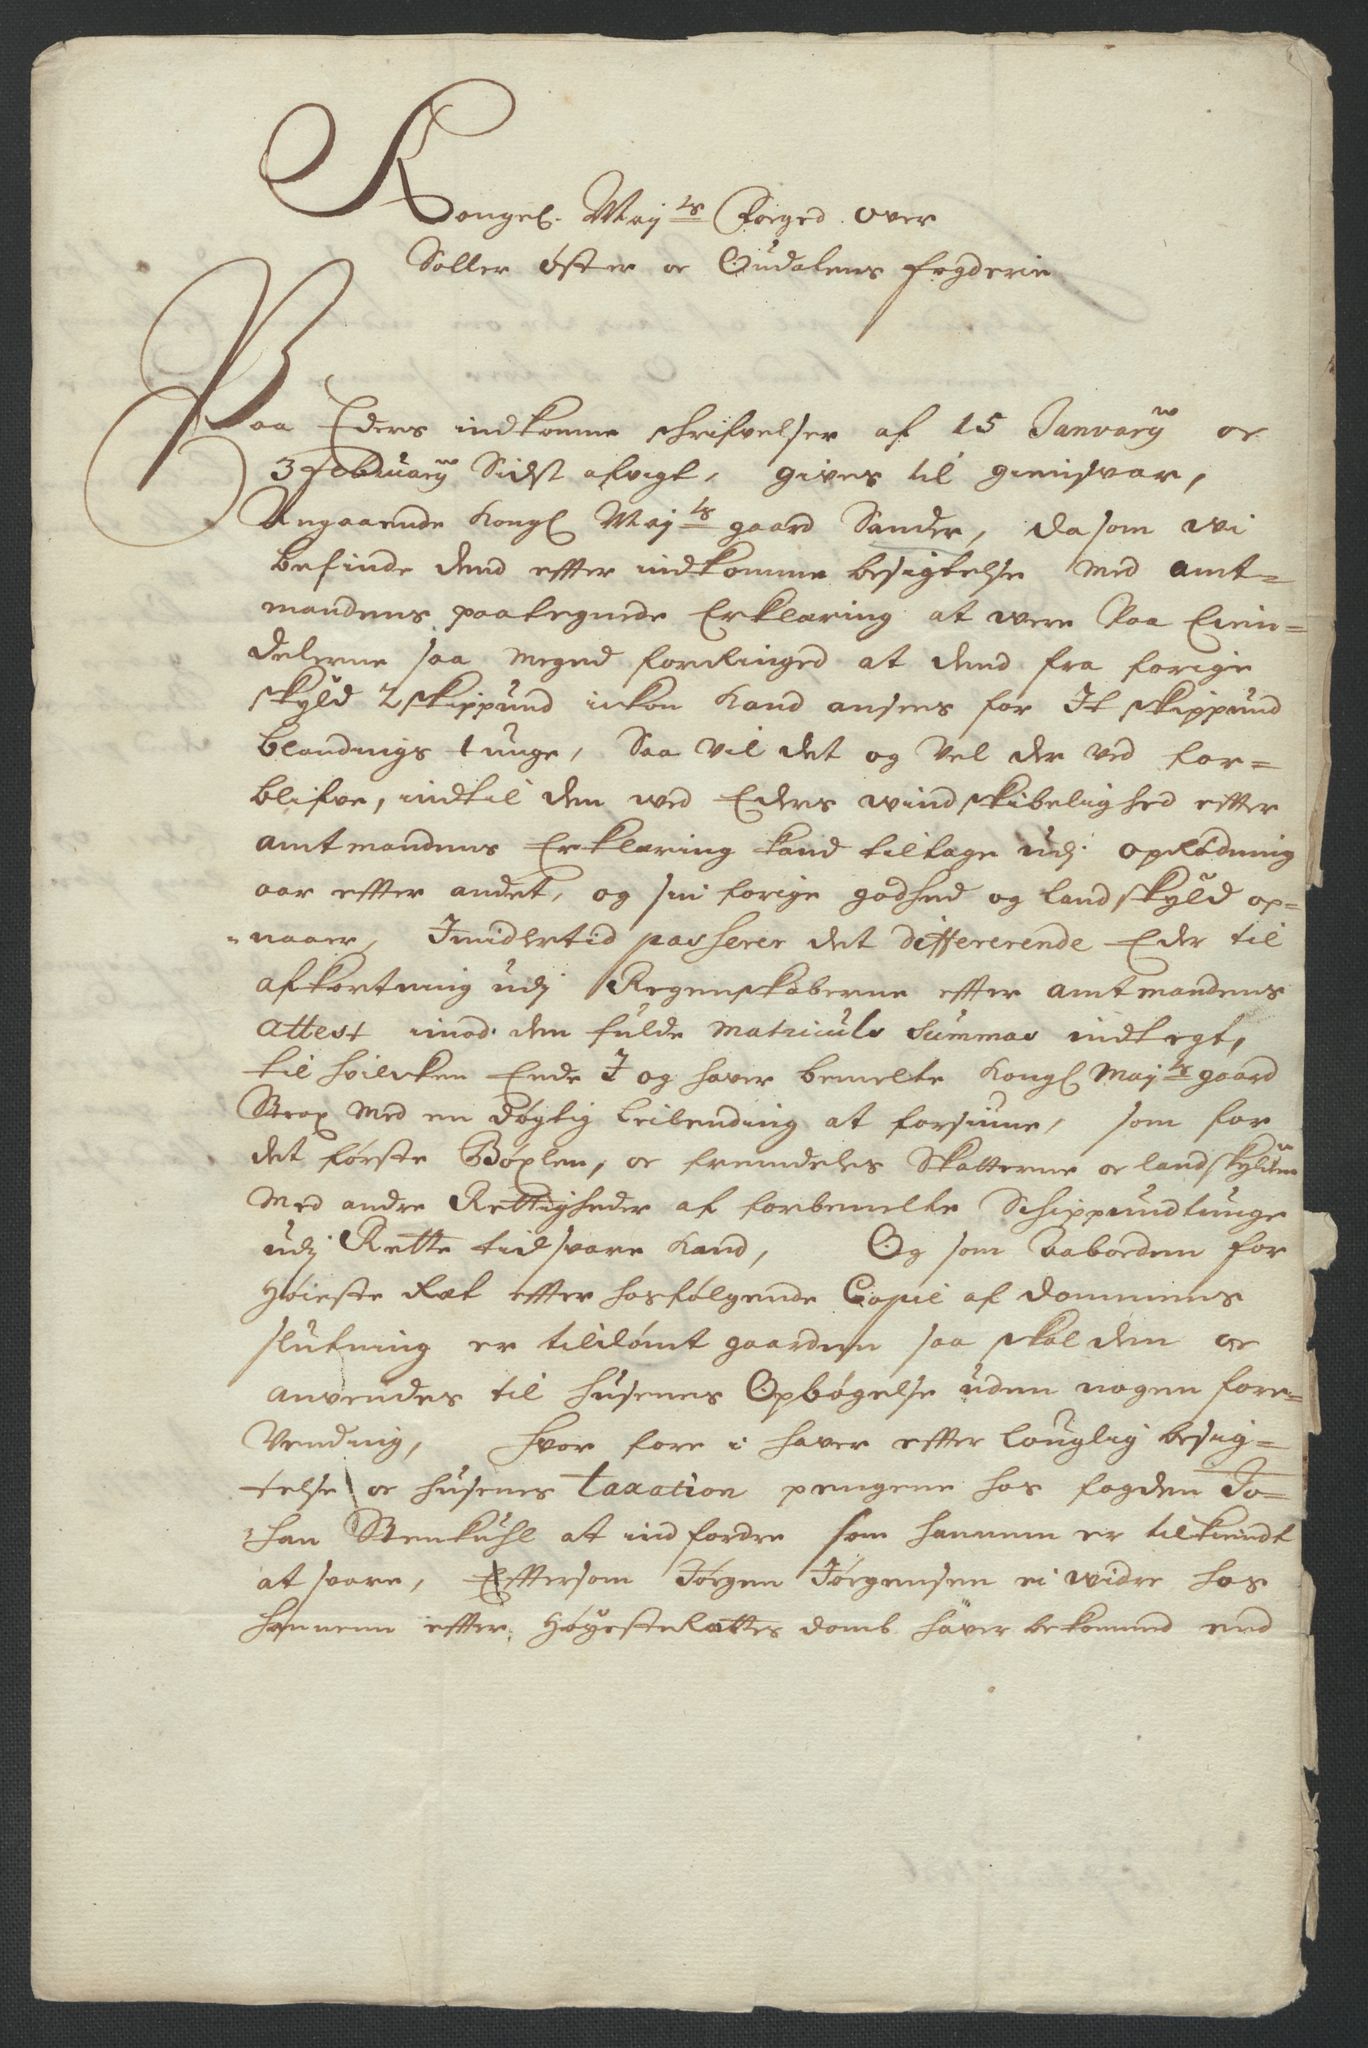 Kongel. Maÿ ts Foeged over
Soller øster oc Oudalens fogderie
Paa Eders indkomne schrifvelser af 15 Janvarÿ oc
3 Februarÿ Sidst afvigt, gives til giensvar,
Angaaende Kongl Maÿ ts gaard Sander, da som wi
befinde dend efter indkomne besigtelse med amt-
mandens paategnede Erklæring at were paa Eien-
delerne saa meged forringed at dend fra forige
skyld 2 skippund icken kand ansees for It skippund
blandings tunge, Saa vil det og vel der ved for-
blifve, indtil den wed Eders windskibelighed effter
amtmandens Erklæring kand tiltage udj oprødning
aar effter andet, og sin forige godhed og landskyld op-
naaer, Imidlertid passerer det differerende Eder til
afkortning udj Regenskaberne effter amtmandens
attest imod den fulde matriculs summas indtegt,
til hvilcken Ende I og haver bemelte Kongl Maÿ ts gaard
Strax med en døgtig leilending at forsiune, som for
det første Bøxlen, oc fremdeles Skatterne oc landskylden
med andre Rettigheder af forbemelte Schippundtunge
udj Rette tid svare kand, Og som Aaboeden for
Høieste Ræt effter hosfølgende Copie af dommens
slutning er tildømt gaarden saa skal den oc
anvendes til husenes Opbøgelse uden nogen fore-
vending, hvor fore i haver effter louglig besig-
telse oc husenes taxation pengene hos fogden Jo-
han Stenkuhl at indfordre som hannem er tilkiendt
at svare, Efftersom Jørgen Jørgensen ei widre hos
hannem effter HøyesteRættes domb haver bekommed end